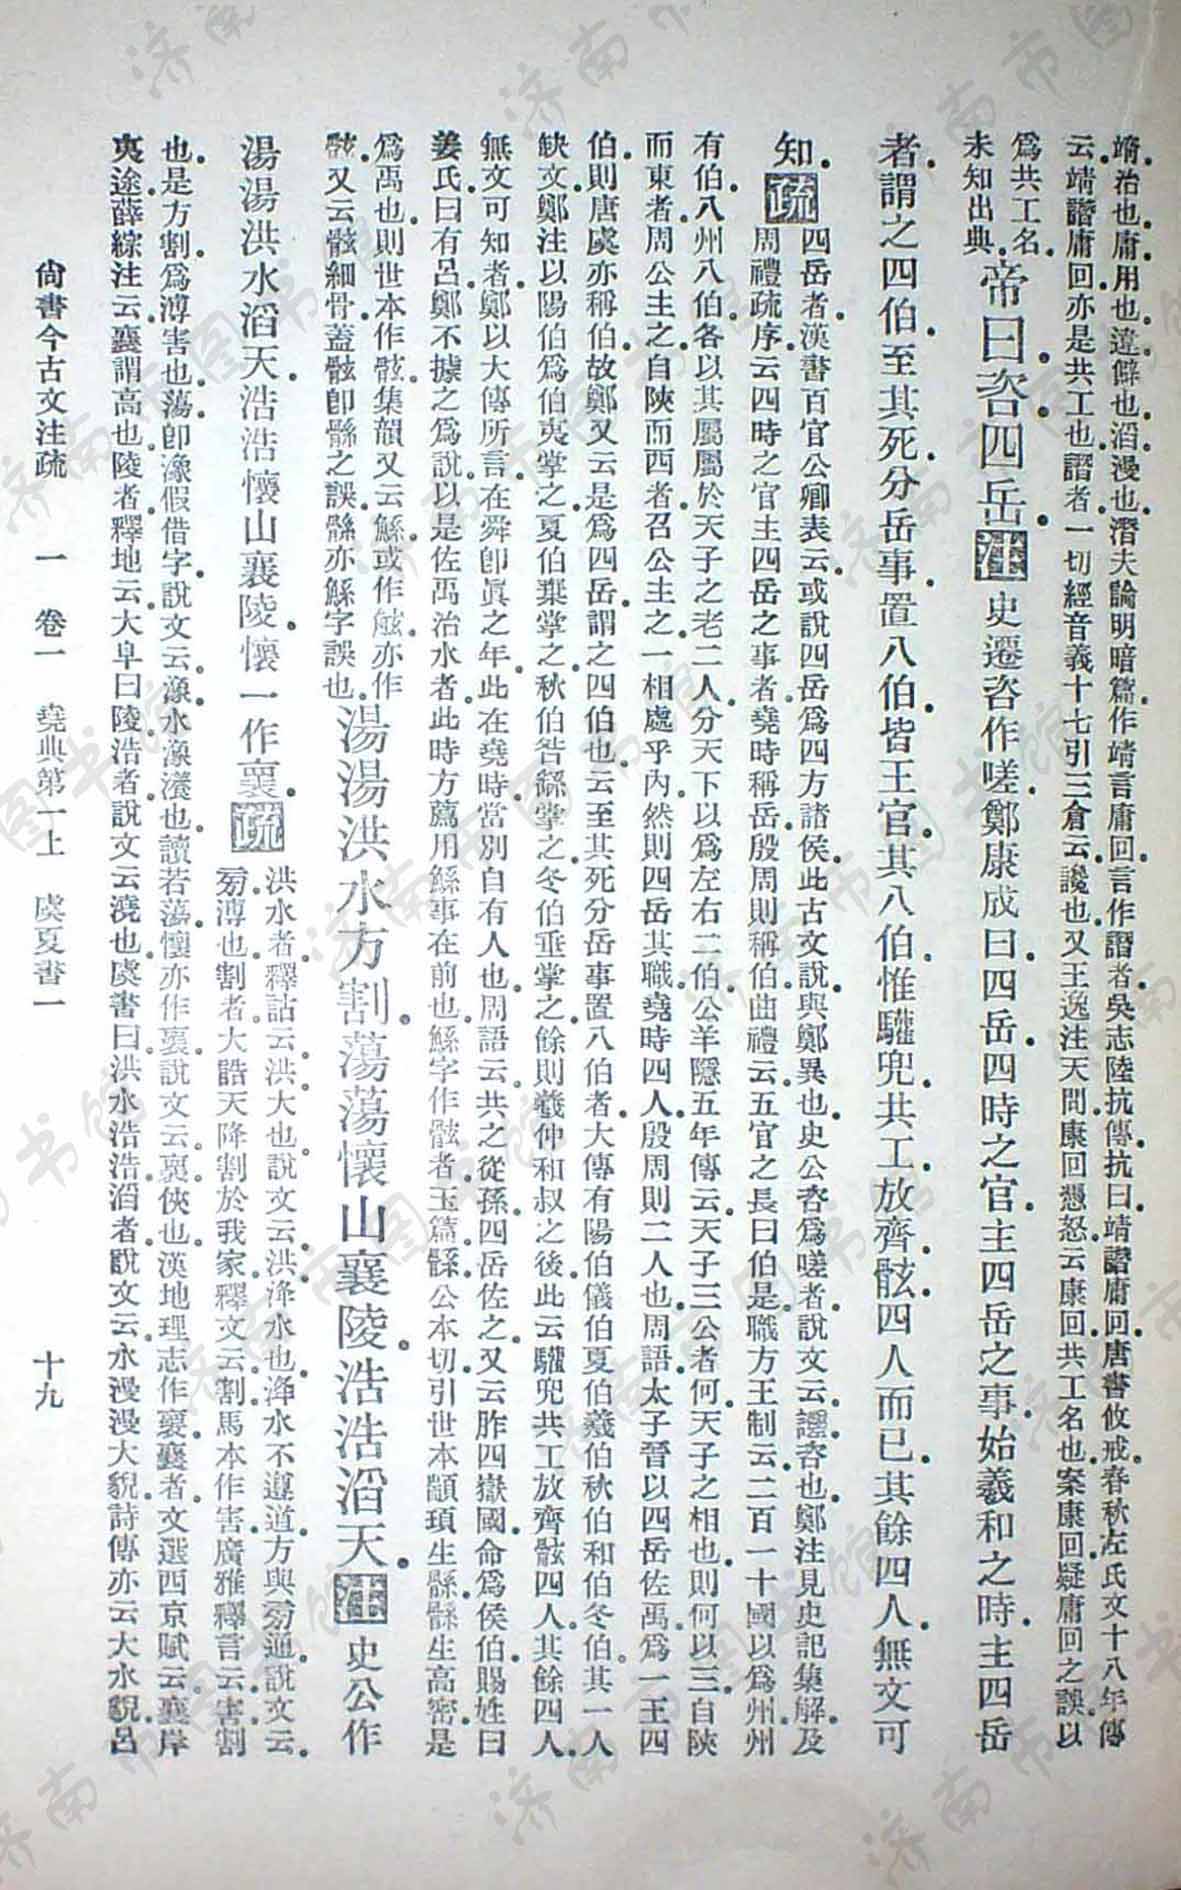 靖治也庸用也違僻也滔漫也潛夫論明暗篇作靖言庸回言作譖者吳志陸抗傳抗曰靖譖庸回唐書攸戒春秋左氏文十八年傳
云靖譖庸回亦是共工也譖者一切經音義十七引三倉云讒也又王逸注天問康回憑怒云康回共工名也案康回疑庸回之誤以
爲共工名
未知出典帝曰咨四岳注史遷咨作嗟鄭康成曰四岳四時之官主四岳之事始羲和之時主四岳
者謂之四伯至其死分岳事置八伯皆王官其八伯惟驩兜共工放齊骸四人而已其餘四人無文可
知疏
四岳者漢書百官公卿表云或說四岳爲四方諸侯此古文說與鄭異也史公咨爲嗟者說文云謯咨也鄭注見史記集解及
周禮疏序云四時之官主四岳之事者堯時稱岳殷周則稱伯曲禮云五官之長曰伯是職方王制云二百一十國以爲州州
有伯八州八伯各以其屬屬於天子之老二人分天下以爲左右二伯公羊隱五年傳云天子三公者何天子之相也則何以三自陝
而東者周公主之自陝而西者召公主之一相處乎內然則四岳其職堯時四人殷周則二人也周語太子晉以四岳佐禹爲一王四
伯則唐虞亦稱伯故鄭又云是爲四岳謂之四伯也云至其死分岳事置八伯者大傳有陽伯儀伯夏伯羲伯秋伯和伯冬伯其一人
缺文鄭注以陽伯爲伯夷掌之夏伯棄掌之秋伯咎繇掌之冬伯垂掌之餘則羲仲和叔之後此云驩兜共工放齊骸四人其餘四人
無文可知者鄭以大傳所言在舜卽眞之年此在堯時當別自有人也周語云共之從孫四岳佐之又云胙四嶽國命爲侯伯賜姓曰
姜氏曰有呂鄭不據之爲說以是佐禹治水者此時方薦用鯀事在前也鯀字作骸者玉篇骸公本切引世本顓頊生鯀鯀生高密是
爲禹也則世本作骸集韻又云鯀或作䱁亦作
骸又云骸細骨蓋骸卽鯀之誤鯀亦鯀字誤也湯湯洪水方割蕩蕩懷山襄陵浩浩滔天注史公作
湯湯洪水滔天浩浩懷山襄陵懷一作褱疏
洪水者釋詁云洪大也說文云洪洚水也洚水不遵道方與㫄通說文云
㫄溥也割者大誥天降割於我家釋文云割馬本作害廣雅釋言云害割
也是方割爲溥害也蕩卽潒假借字說文云潒水潒瀁也讀若蕩懷亦作褱說文云褱俠也漢地理志作褱襄者文選西京賦云襄岸
夷途薛綜注云襄謂高也陵者釋地云大阜曰陵浩者說文云澆也虞書曰洪水浩浩滔者說文云水漫漫大貌詩傳亦云大水貌呂
尙書今古文注疏 一 卷一 堯典第一上 虞夏書一 十九